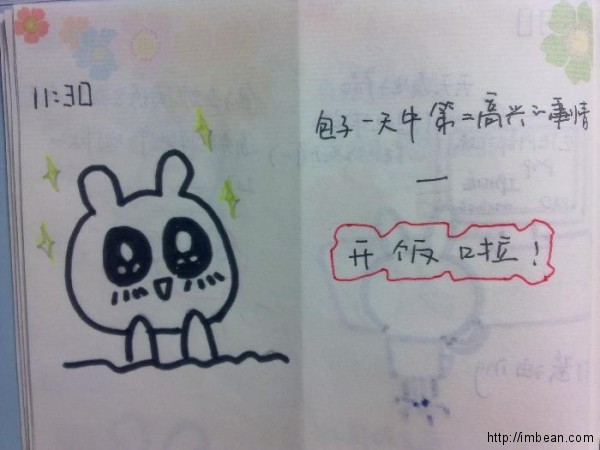 11:30
包子一天中第二高兴的事情
—
开饭啦!
ing
http://imbean.com